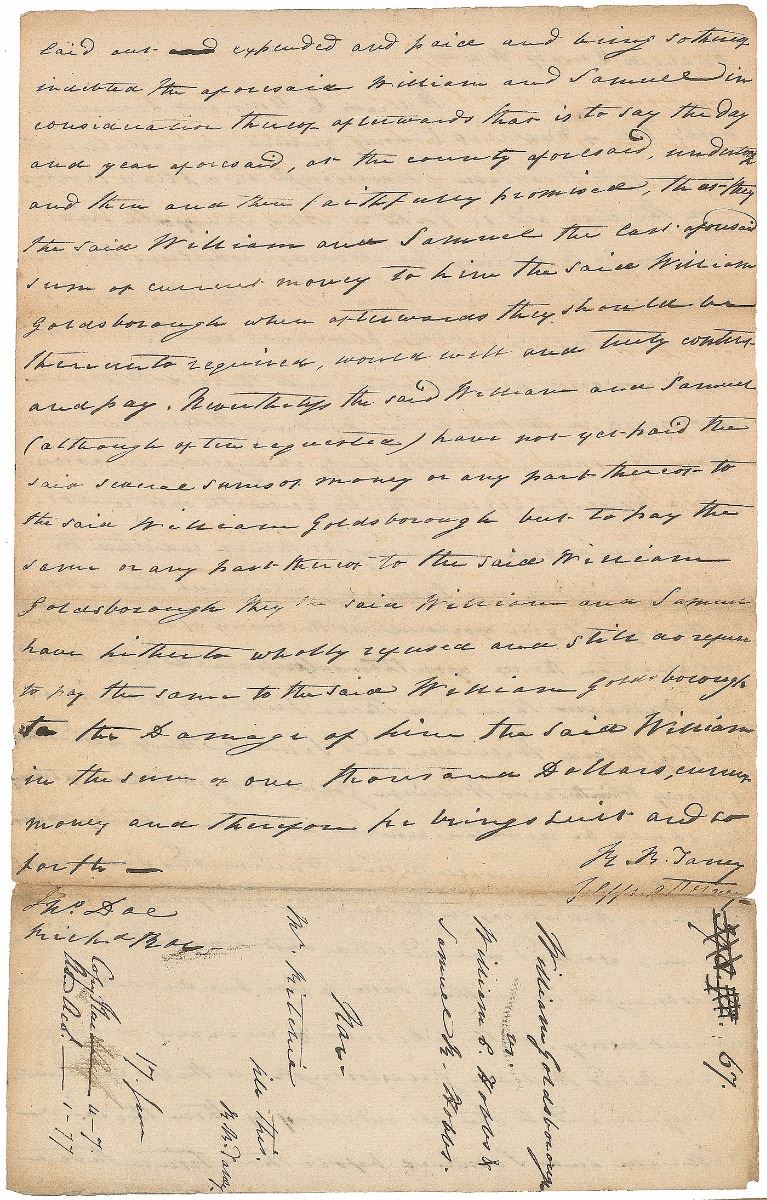 laid out and expended and paid and being so thereof
indebted the aforesaid William and Samuel in
consideration thereof afterwards that is to say the day
and year aforesaid, at the county aforesaid, undertook
and then and there faithfully promised, that they
the said William and Samuel the last aforesaid
sum of current money to him the said William
Goldsborough when afterwards they should be
thereunto required, would well and truly content
and pay. Nevertheless the said William and Samuel
(although often requested) have not yet paid the
said several sums of money or any part thereof to
the said William Goldsborough but to pay the
same or any part thereof to the said William
Goldsborough they the said William and Samuel
have hitherto wholly refused and still do refuse
to pay the same to the said William Goldsborough
to the Damage of him the said William
in the sum of one thousand Dollars, current
money and therefore he brings suit and so
forth —
R. B. Taney
Plffs attorney
Jno. Doe
Richd Roe
67.
William Goldsborough
vs.
William S. Hobbs &
Samuel M. Hobbs.
Nar.
Mr. Ritchie
file this.
R. B. Taney
17 June
Copy Nar